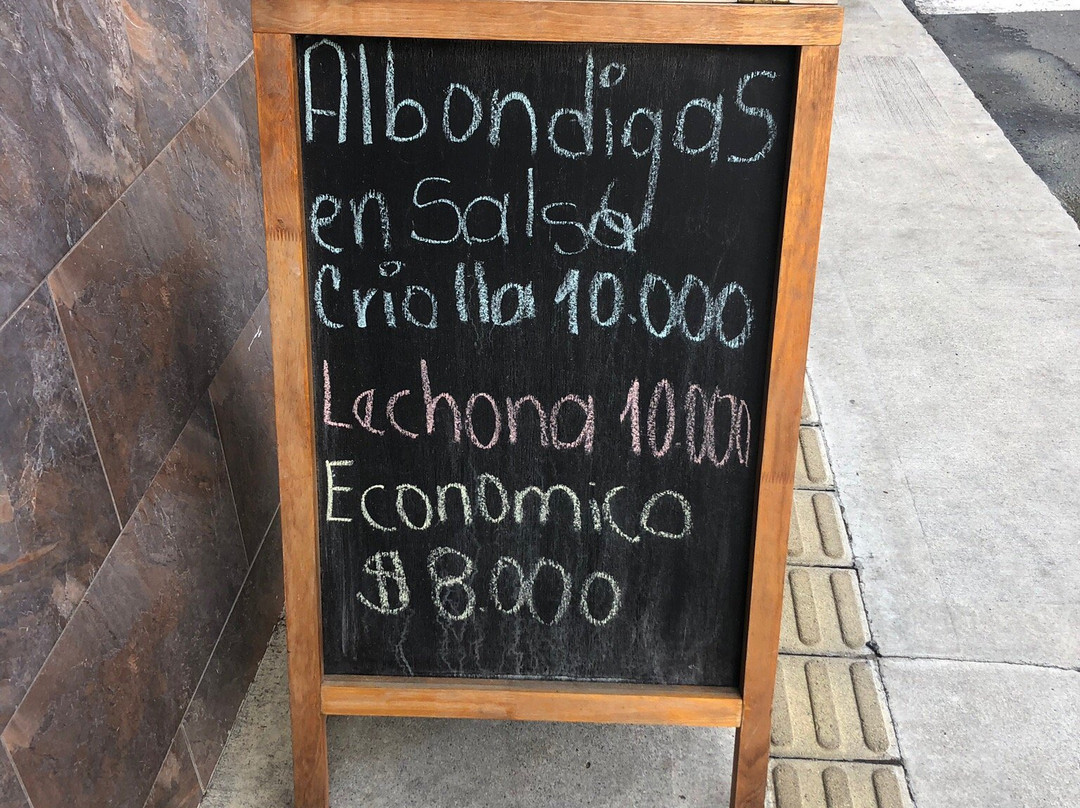 Albondigas
en Salsa
Criolla 10.000
Lechona 10.000
Economico
$ 8.000